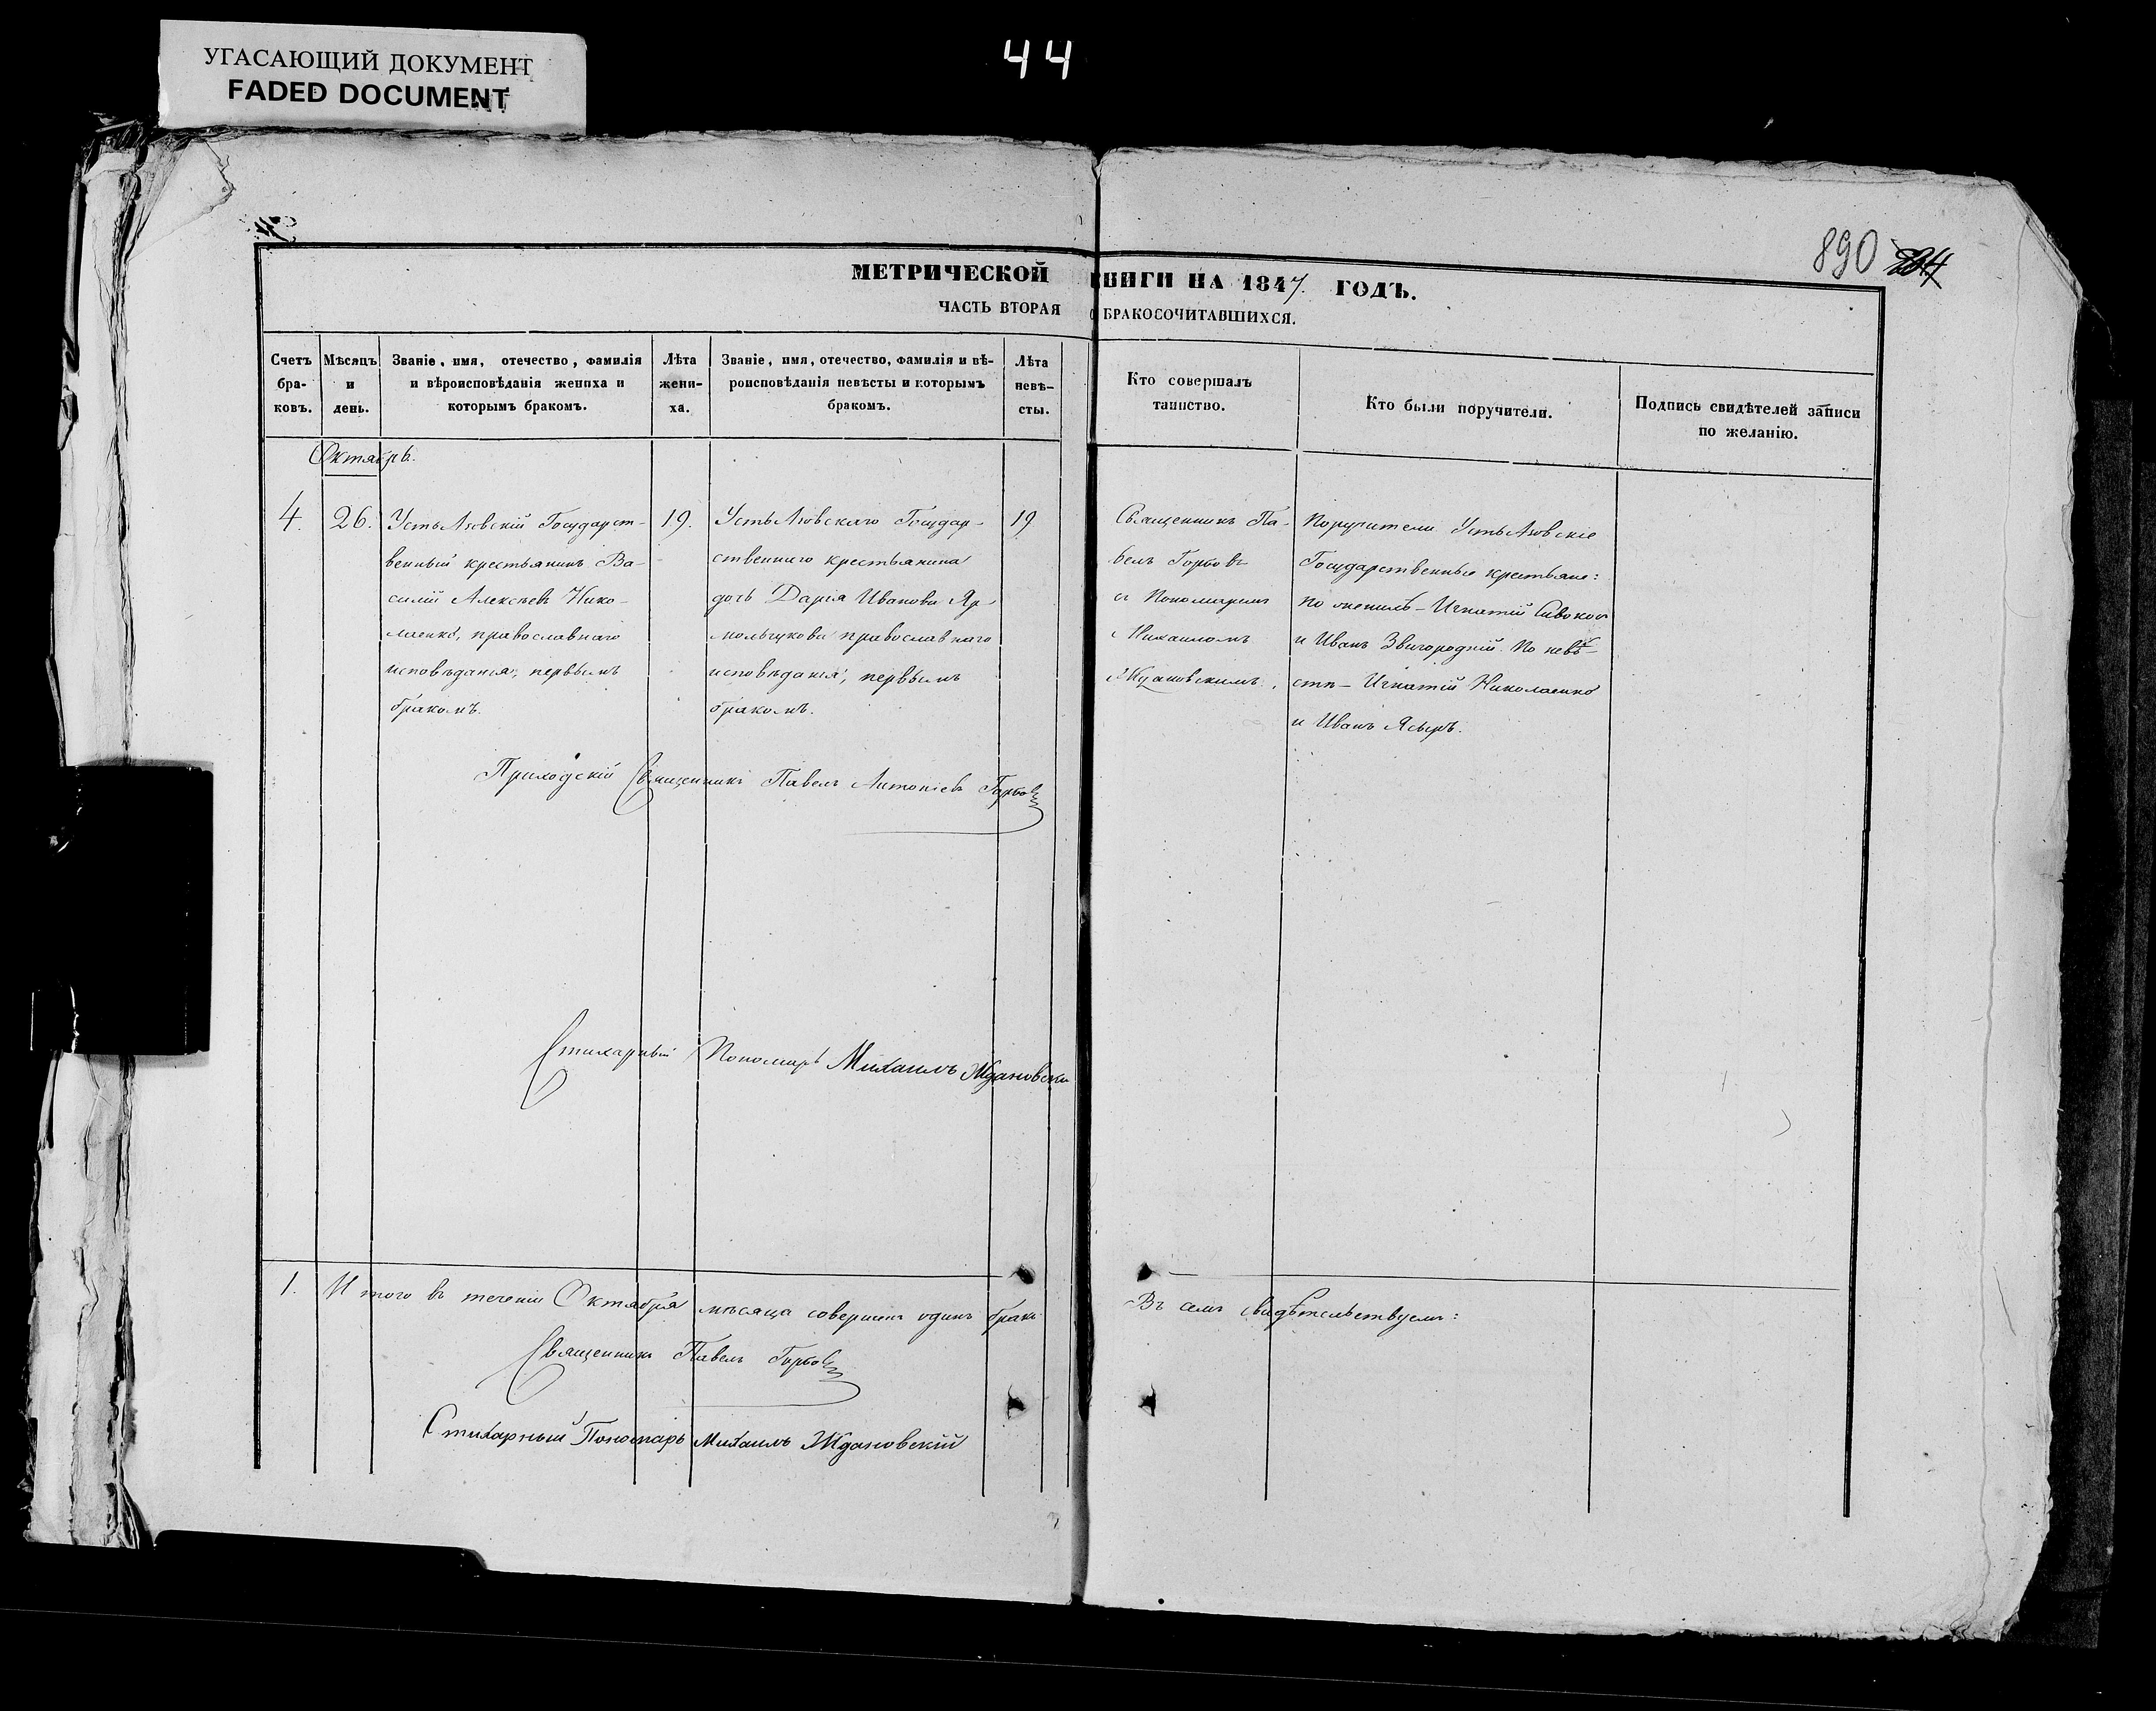 УГАСАЮЩИЙ ДОКУМЕНТ
FADED DOCUMENT
44
890
МЕТРИЧЕСКОЙ КНИГИ НА 1847. ГОДЪ.
ЧАСТЬ ВТОРАЯ О БРАКОСОЧИТАВШИХСЯ.
Счетъ
бра-
ковъ.
Мѣсяцъ
и
день.
Званіе, имя, отечество, фамилія
и вѣроисповѣданія жениха и
которымъ бракомъ.
Лѣта
жени-
ха.
Званіе, имя, отечество, фамилія и вѣ-
роисповѣданія невѣсты и которымъ
бракомъ.
Лѣта
невѣ-
сты.
Кто совершалъ
таинство.
Кто были поручители.
Подпись свидѣтелей записи
по желанію.
Октябрь.
4.
26.
Государст-
венный крестьянинъ Ва-
силій Алексѣевъ Нико-
лаенко, православнаго
исповѣданія, первымъ
бракомъ.
19.
Государ-
ственнаго крестьянина
дочь Дарія Иванова Яр-
мольчукова православнаго
исповѣданія, первымъ
бракомъ.
19
Священникъ Па-
велъ Горбовъ
съ Пономаремъ
Михаиломъ
Ждановскимъ.
Поручители
Государственные крестьяне:
по женихѣ - Игнатій
и Иванъ Звигородній. По невѣ-
стѣ - Игнатій Николаенко
и Иванъ
Приходскій Священникъ Павелъ Антоніевъ Горбовъ
Стихарный Пономарь Михаилъ Ждановскі
1.
Итого въ теченіи Октября мѣсяца совершенъ одинъ бракъ
Въ семъ свидѣтельствуемъ:
Священникъ Павелъ Горбовъ
Стихарный Пономарь Михаилъ Ждановскій